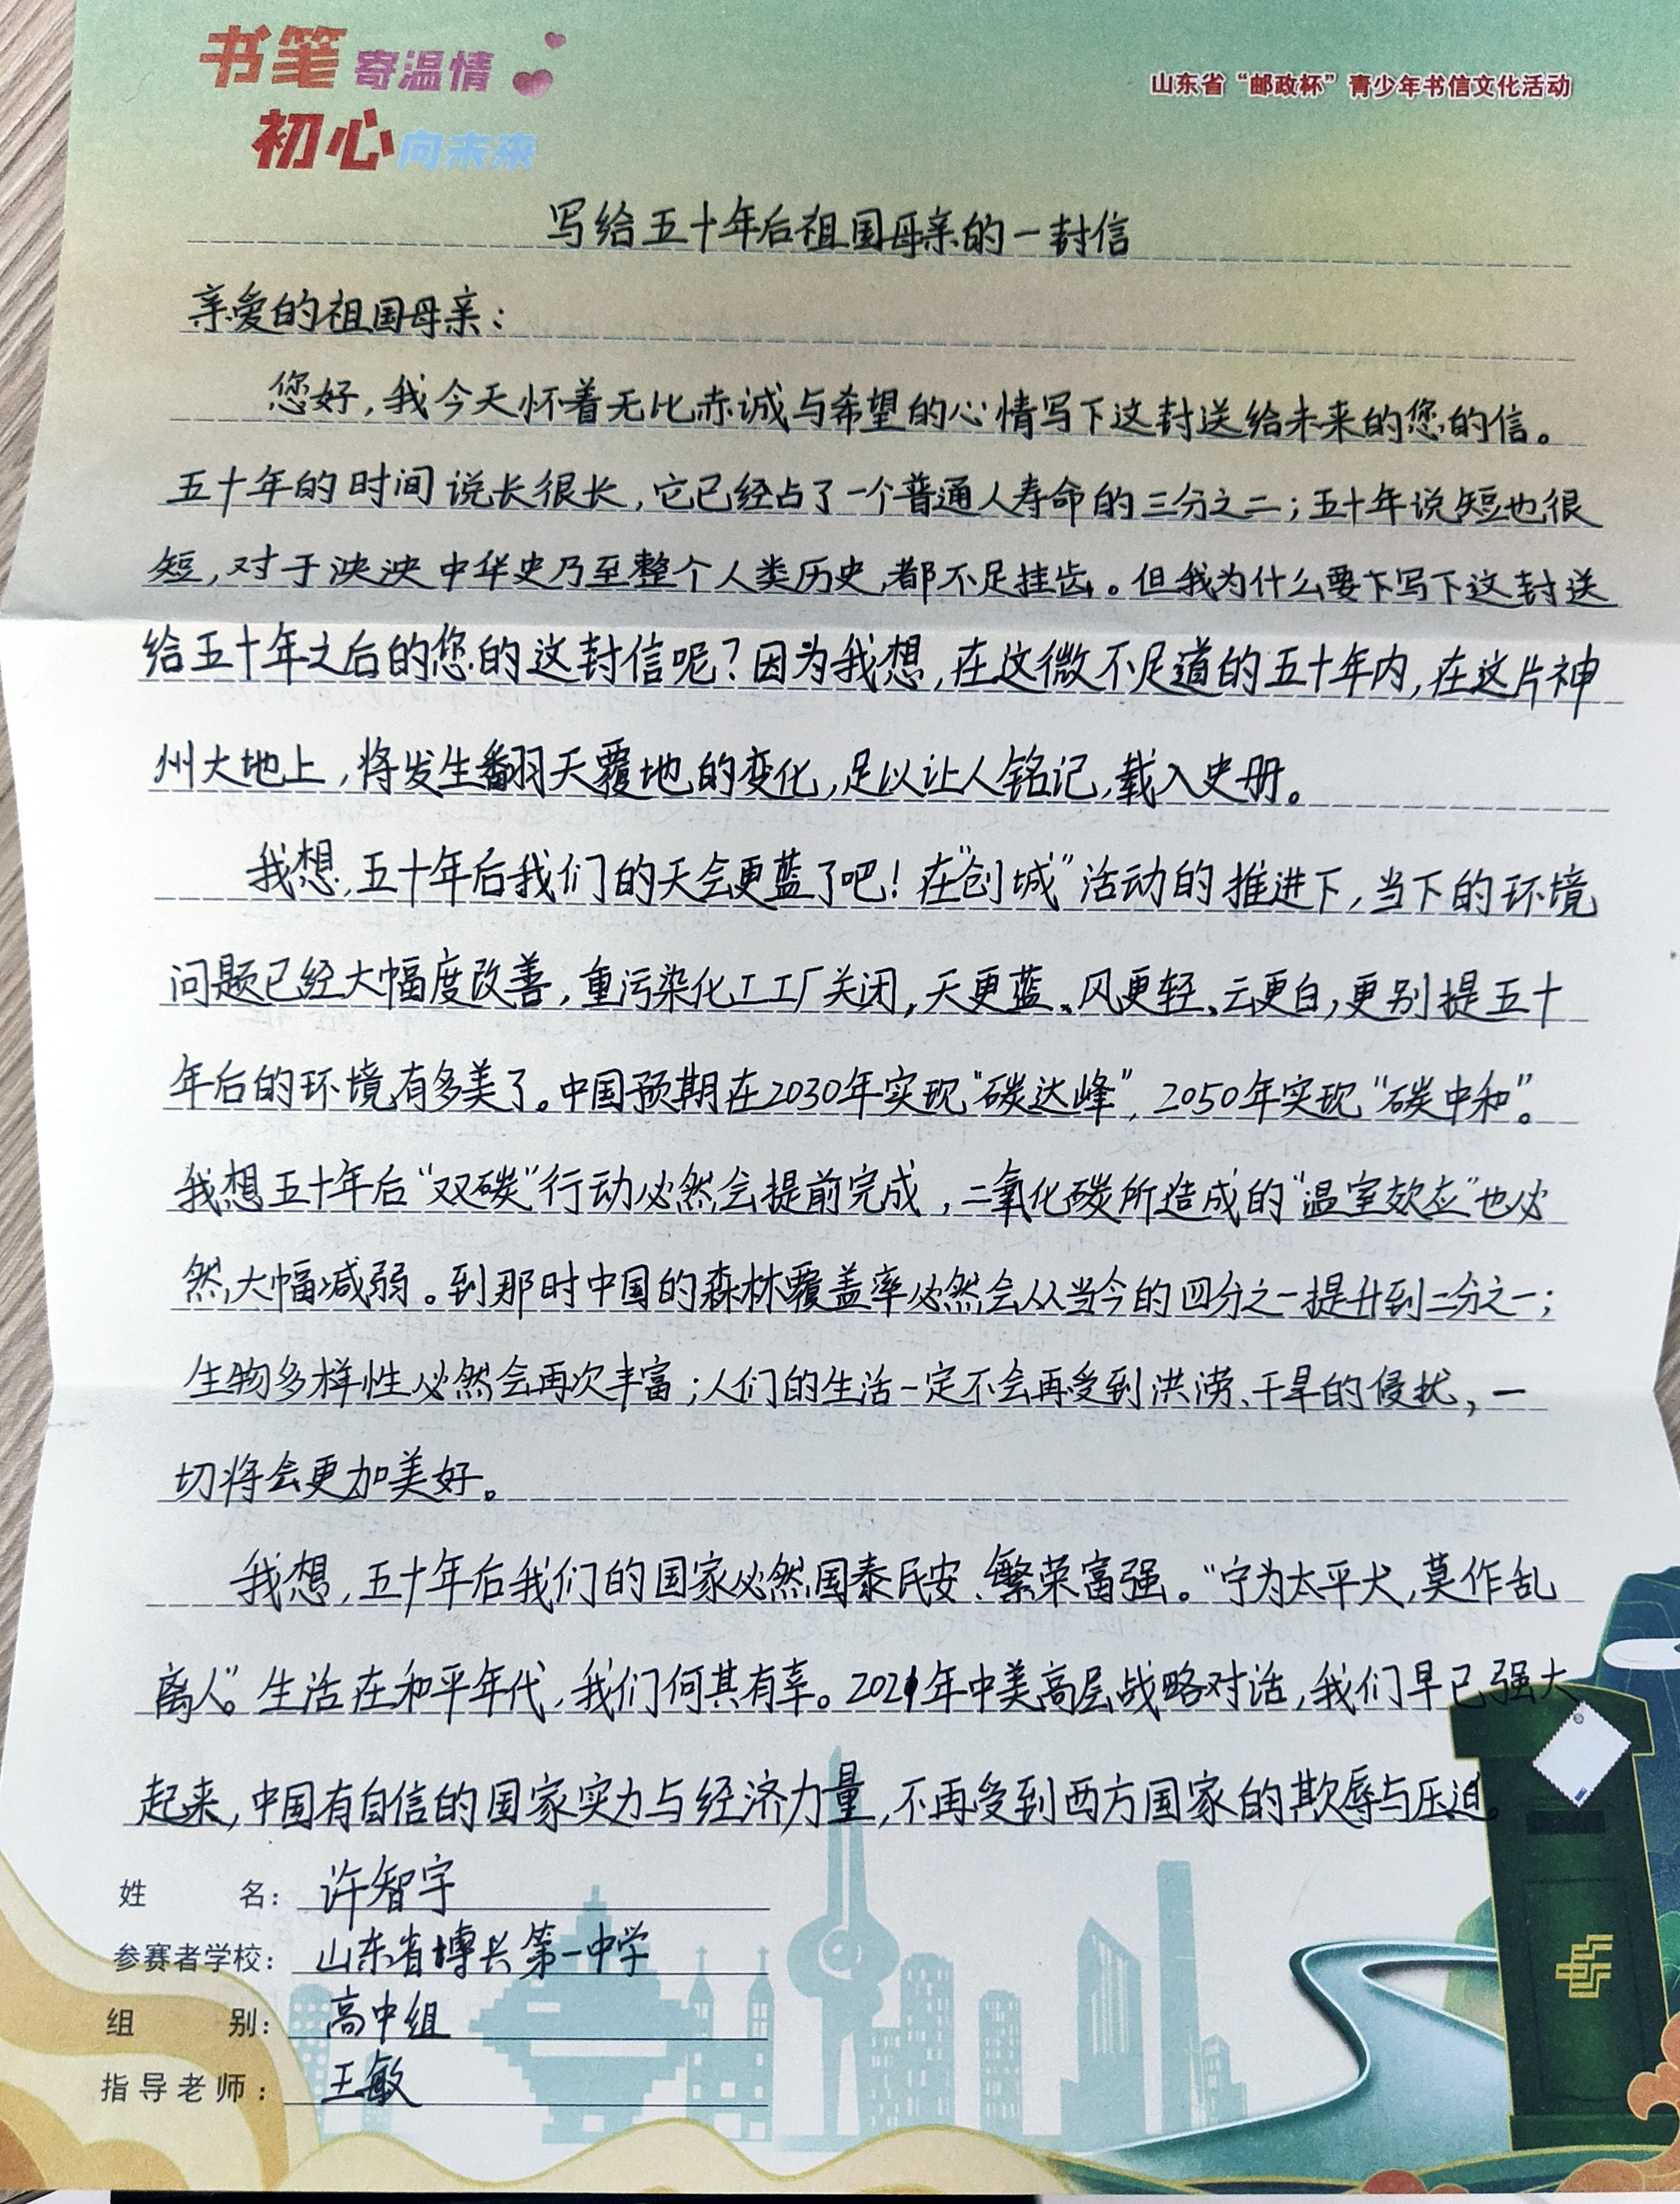 书笔寄温情
初心向未来
山东省“邮政杯”青少年书信文化活动
写给五十年后祖国母亲的一封信
亲爱的祖国母亲：
您好，我今天怀着无比赤诚与希望的心情写下这封送给未来的您的信。
五十年的时间说长很长，它已经占了一个普通人寿命的三分之二；五十年说短也很
短，对于泱泱中华史乃至整个人类历史，都不足挂齿。但我为什么要下写下这封送
给五十年之后的您的这封信呢？因为我想，在这微不足道的五十年内，在这片神
州大地上，将发生翻天覆地的变化，足以让人铭记，载入史册。
我想，五十年后我们的天会更蓝了吧！在“创城”活动的推进下，当下的环境
问题已经大幅度改善，重污染化工工厂关闭，天更蓝、风更轻、云更白，更别提五十
年后的环境有多美了。中国预期在2030年实现“碳达峰”，2050年实现“碳中和”。
我想五十年后“双碳”行动必然会提前完成，二氧化碳所造成的“温室效应”也必
然大幅减弱。到那时中国的森林覆盖率必然会从当今的四分之一提升到二分之一；
生物多样性必然会再次丰富；人们的生活一定不会再受到洪涝、干旱的侵扰，一
切将会更加美好。
我想，五十年后我们的国家必然国泰民安、繁荣富强。“宁为太平犬，莫作乱
离人”。生活在和平年代，我们何其有幸。2021年中美高层战略对话，我们早已强大
起来，中国有自信的国家实力与经济力量，不再受到西方国家的欺辱与压迫。
姓名：许智宇
参赛者学校：山东省博兴第一中学
组别：高中组
指导老师：王敏